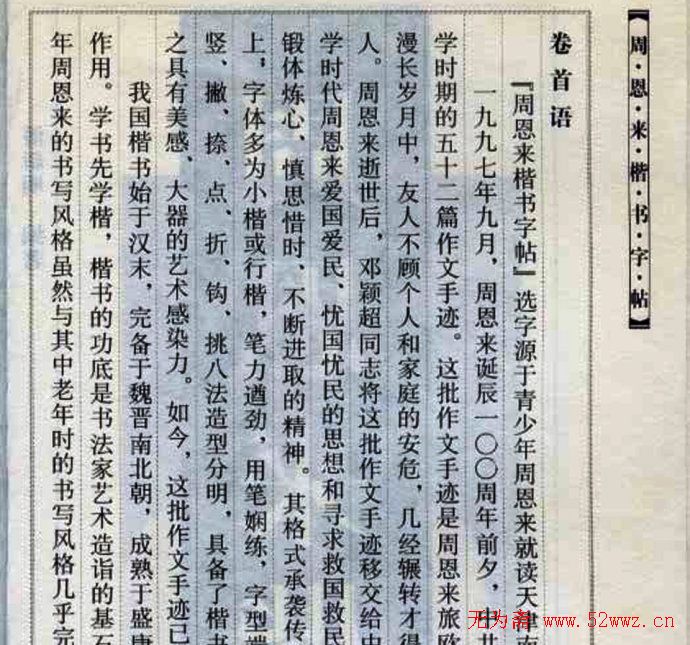 【周·恩·来·楷·书·字·帖】
卷首语
『周恩来楷书字帖』选字源于青少年周恩来就读天津南
一九九七年九月，周恩来诞辰一〇〇周年前夕，中共
学时期的五十二篇作文手迹。这批作文手迹是周恩来旅欧
漫长岁月中，友人不顾个人和家庭的安危，几经辗转才得
人。周恩来逝世后，邓颖超同志将这批作文手迹移交给中
学时代周恩来爱国爱民、忧国忧民的思想和寻求救国救民
锻体炼心、慎思惜时、不断进取的精神。其格式承袭传
上；字体多为小楷或行楷，笔力遒劲，用笔娴练，字型端
竖、撇、捺、点、折、钩、挑八法造型分明，具备了楷书
之具有美感、大器的艺术感染力。如今，这批作文手迹已
我国楷书始于汉末，完备于魏晋南北朝，成熟于盛唐
作用。学书先学楷，楷书的功底是书法家艺术造诣的基石
年周恩来的书写风格虽然与其中老年时的书写风格几乎完
无为斋 www.52wwz.cn